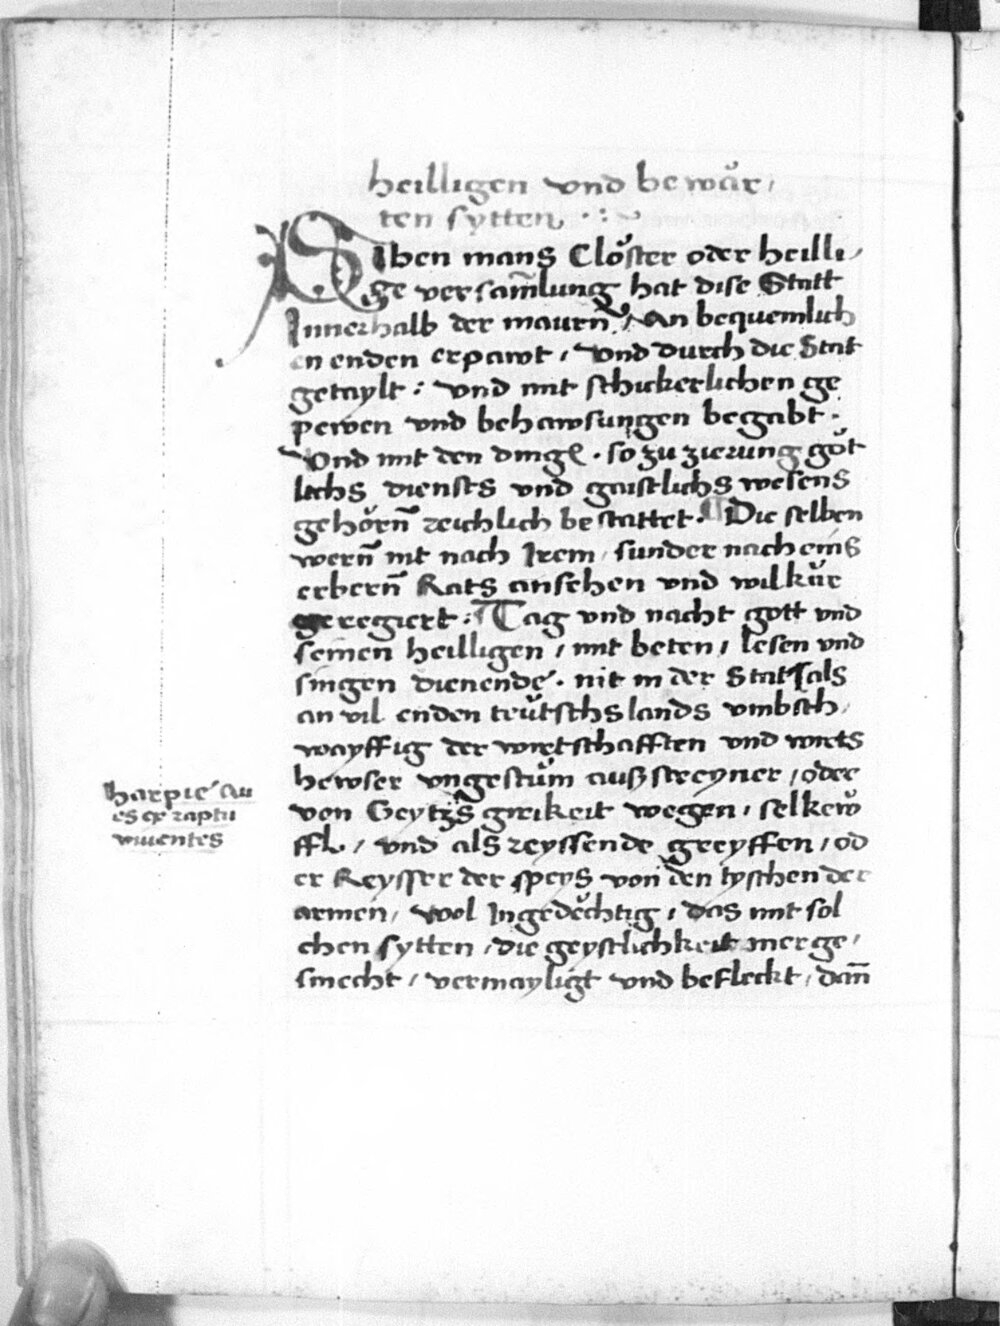 heilligen vnd bewär,
ten sytten .:~
Siben mans Clöster oder heilli,
ge versam̃lung hat dise Statt
Innerhalb der maurñ / An bequemlich
en enden erpawt / Vnd durch die Stat
getaylt : vnd mit schickerlichen ge
pewen vnd behawsungen begabt :
Vnd mit den dingẽ . so zu zierung göt
lichs diensts vnd gaistlichs wesens
gehörñ reichlich bestattet . ¶ Die selben
werñ nit nach Irem / sunder nach eins
erberñ Rats ansehen vnd wilkür
geregiert : Tag vnd nacht gott vnd
seinen heilligen / mit beten / lesen vnd
singen dienende . nit in der Stat / als
an vil enden teütschs lands vmbsch,
wayffig der wirtschafften vnd wirts
hewser vngestüm außstreyner / oder
von Geytzs girikeit wegen / selkew
ffl / vnd als reyssende greyffen / od
er Reysser der speys von den tyschen der
armen / Wol Ingedëchtig / das mit sol
chen sytten / die geystlichkeit merge,
smecht / vermayligt vnd befleckt / dañ
harpie au
es ex raptu
viuentes